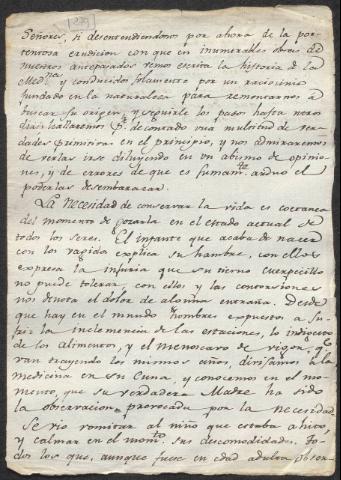 279
Señores, si desentendiendonos por ahora de la por-
tentosa erudicion con que en inumerables obras de
nuestros antepasados vemos escrita la historia de la
Medna y conducidos solamente por un raciocinio
fundado en la naturaleza para remontarnos a
buscar su origen, y seguirle los pasos hasta noso
tros hallaremos pr. decontado una multitud de ver-
dades primitivas en el principio, y nos admiraremos
de verlas irse diluyendo en un abismo de opinio-
nes, y de errores de que es sumamte. arduo el
poderlas desembarazar.
La necesidad de conservar la vida es coetanea
del momento de gozarla en el estado actual de
todos los seres. El infante que acaba de nacer
con los vagidos explica su hambre, con ellos
expresa la injuria que su tierno cuerpecillo
no puede tolerar, con ellos y las contorsiones
nos denota el dolor de alguna entraña. Desde
que hay en el mundo hombres expuestos a su-
frir la inclemencia de las estaciones, lo indigesto
de los alimentos, y el menoscavo de vigor qe.
van trayendo los mismos años, divisamos a la
medicina en su Cuna, y conocemos en el mo-
mento, que su verdadera Madre ha sido
la observacion provocada por la necesidad.
Se vio vomitar al niño que estaba ahito,
y calmar en el momto. sus descomodidades. To-
dos los que, aunque fuese en edad adulta obser-